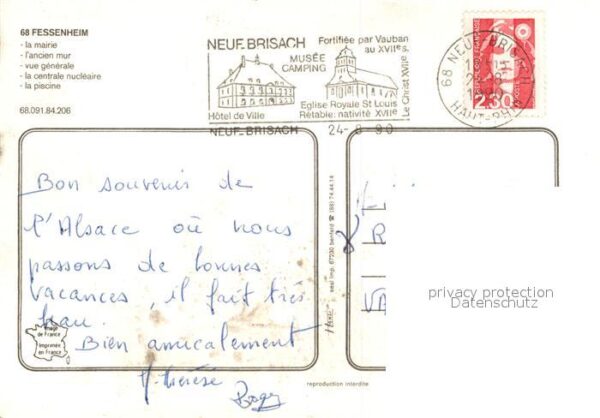 68 FESSENHEIM
- la mairie
- l'ancien mur
- vue générale
- la centrale nucléaire
- la piscine
68.091.84.206
NEUF-BRISACH
MUSÉE
CAMPING
Hôtel de Ville
NEUF-BRISACH
Fortifiée par Vauban
au XVIIes.
Eglise Royale St Louis
Rétable: nativité XVIIe
Le Christ XVIIe
24-8-90
68 NEUF-BRISACH
HAUT-RHIN
2,30
Bon souvenir de
l'Alsace où nous
passons de bonnes
vacances, il fait très
beau.
Bien amicalement
M. Thérèse
Roger
Image
de France
Imprimée
en France
67230 benfeld ☎ (88) 74.44.14
reproduction interdite
privacy protection
Datenschutz